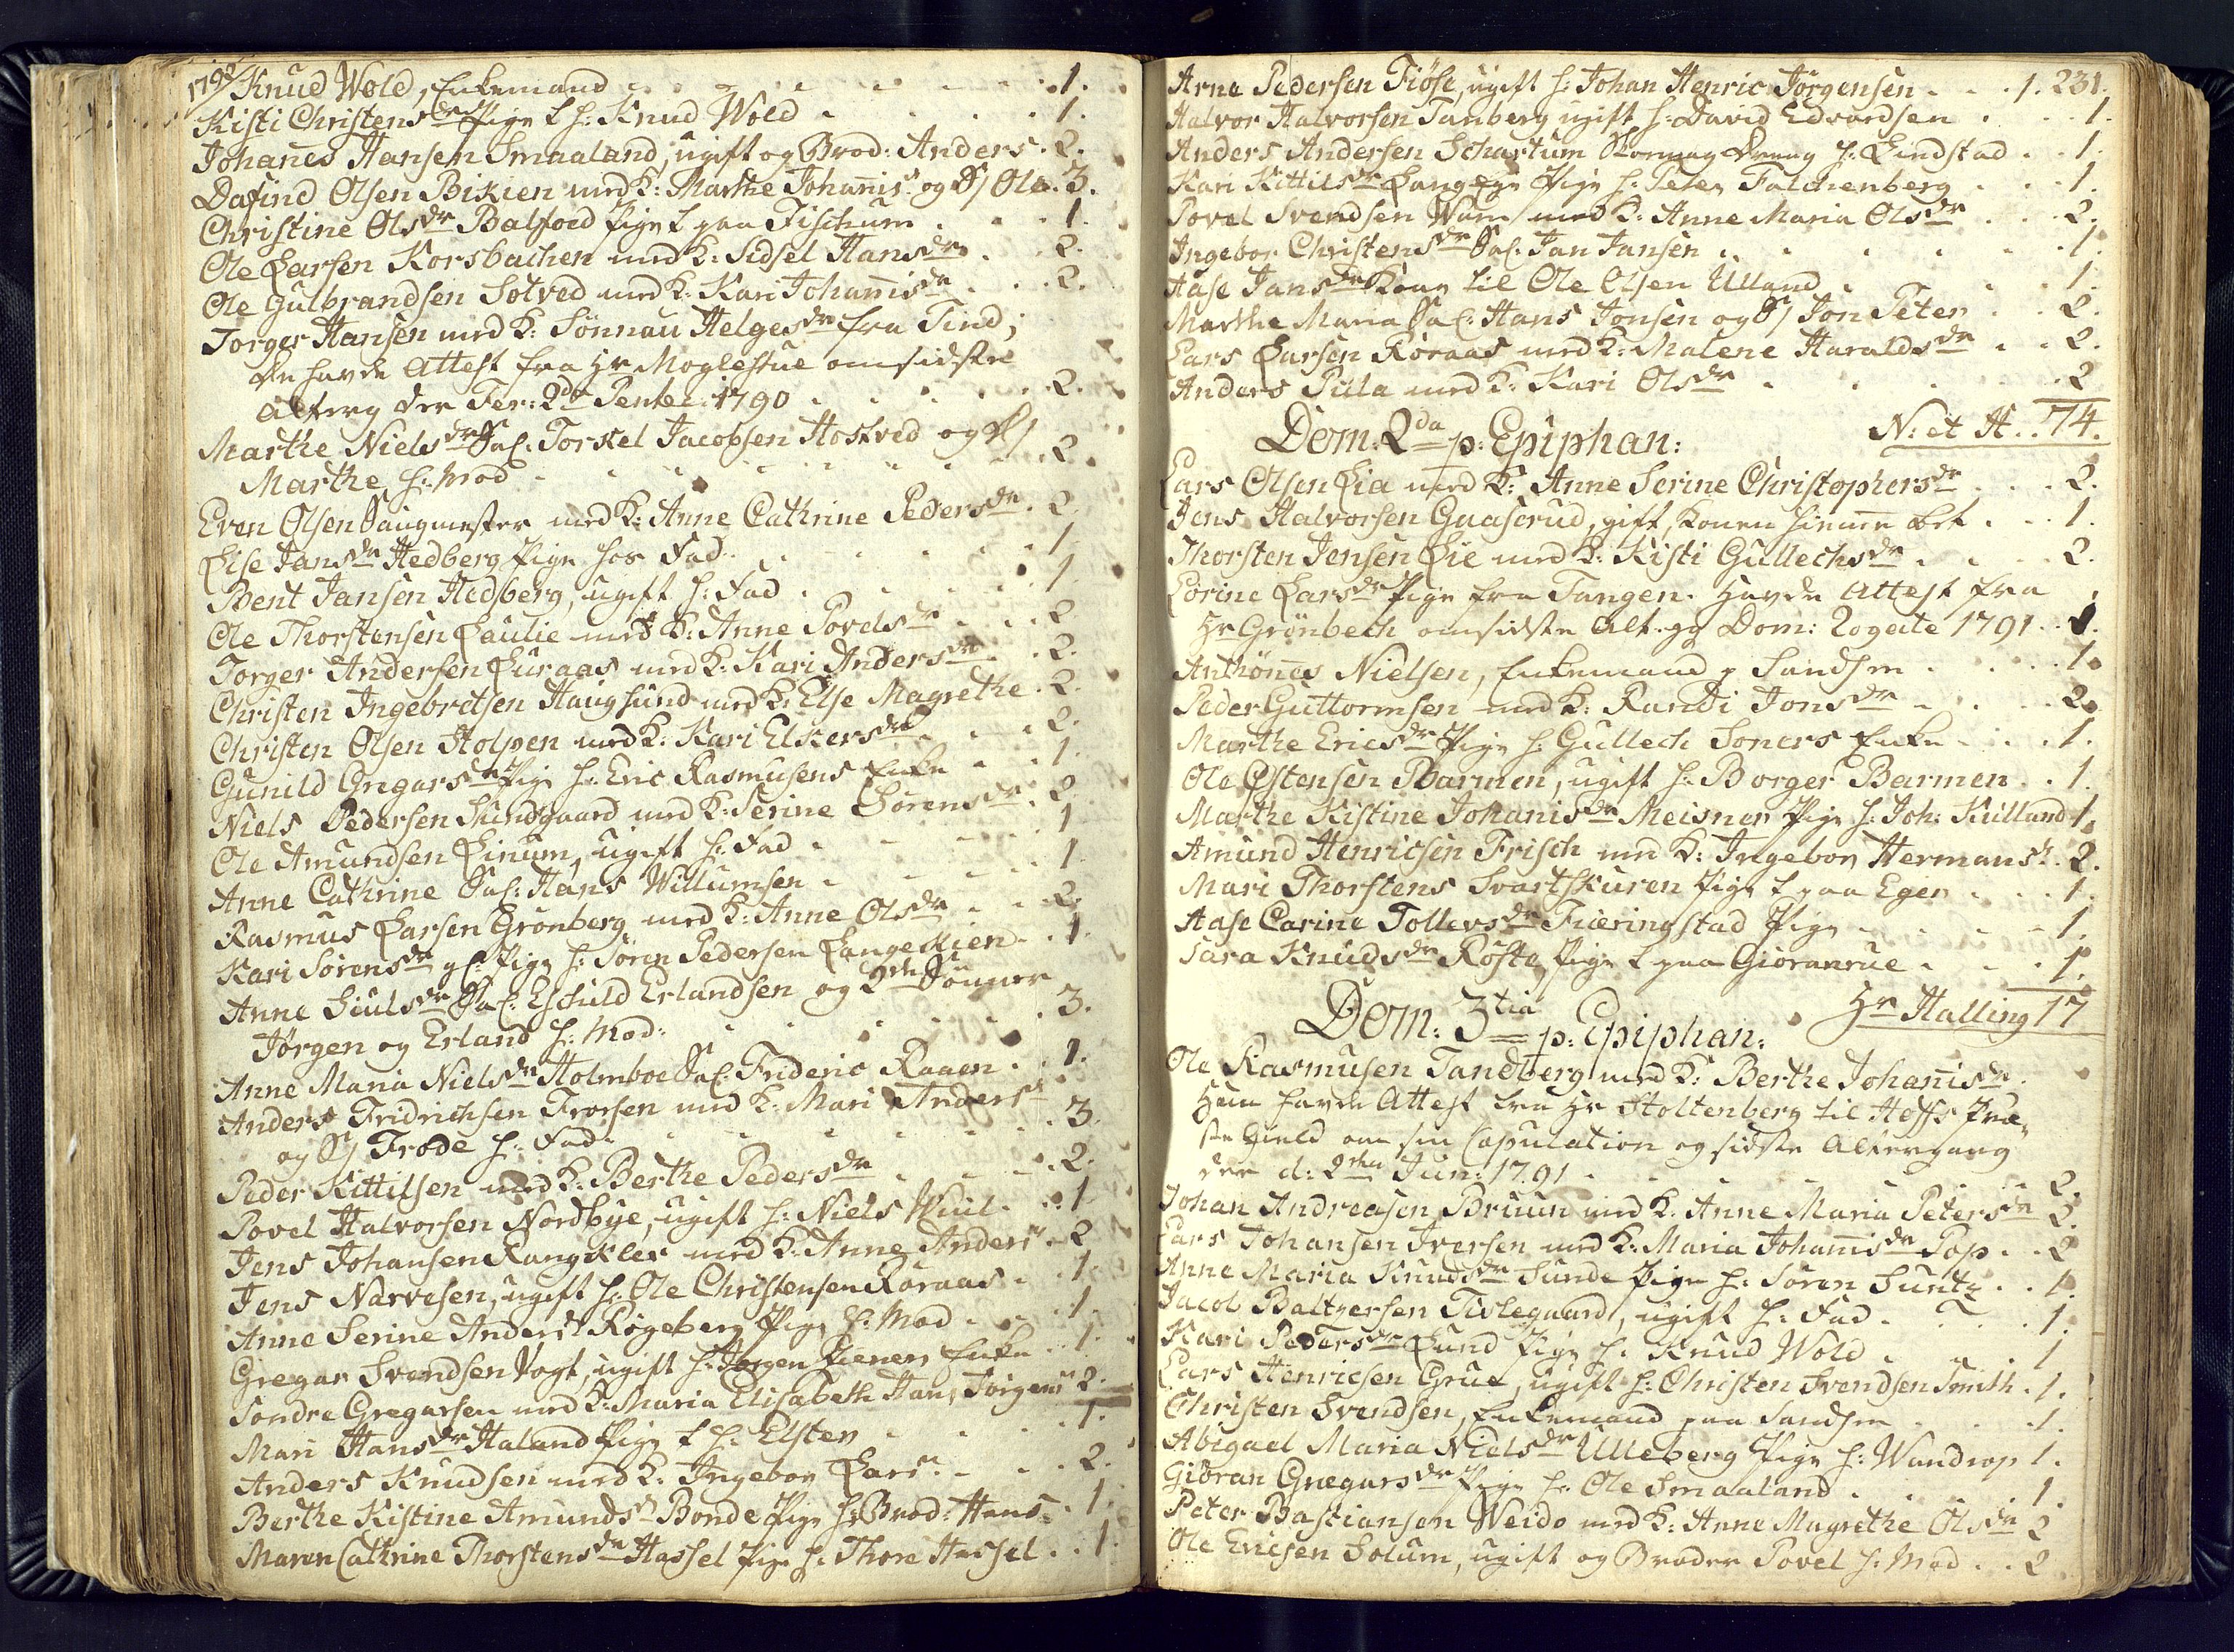 1792
Knud Wold, Enkemand . . . 1.
Kisti Christensdr Pige l h: Knud Wold . . . 1.
Johannes Hansen Smaaland, ugift og Brod: Anders . 2.
Dafind Olsen Bikien med K: Marthe Johannisd og S/ Ole . 3.
Christine Olsdr Balfoed Pige l paa Fischum . . 1.
Ole Larsen Korsbachen med K: Sidsel Hansdr . . 2.
Ole Gulbrandsen Solved med K: Kari Johannisdr . . . 2.
Torger Hansen med K: Sönnau Helgesdr fra Tind;
de havde Attest fra Hr Moglestue om sidste
Alterg der Fer: 2da Pentec: 1790 . . . 2.
Marthe Nielsdr Sal. Torstel Jacobsen Hostved og D/
Marthe h: Mod . . . 2.
Even Olsen Saugmester med K: Anne Cathrine Pedersdr . 2
Else Jansdr Hedberg Pige hos Fad . . . 1
Bent Jansen Hedberg, ugift h: Fad . . . 1.
Ole Thorstensen Laulie med K: Anne Povelsdr . . . 2
Torger Andersen Luraas med K: Kari Andersdr . . 2.
Christen Ingebretsen Haugsund med K: Else Magrethe . 2.
Christen Olsen Stolpen med K: Kari Elkersdr . . . 2.
Gunild Gregarsdr Pige h: Eric Rasmusens Enke . . 1.
Niels Pedersen Skindgaard med K: Serine Sörensdr . 2
Ole Amundsen Linum, ugift h: Fad . . . 1
Anne Cathrine Sal: Hans Willumsen . . . 1.
Rasmus Larsen Grönberg med K: Anne Olsdr . . 2.
Kari Sörensdr gl. Pige h: Sören Pedersen Langekien . . 1.
Anne Siulsdr Sal: Eschild Erlandsen og 2de Sönner
Jørgen og Erland h: Mod: . . . 3.
Anne Maria Nielsdr Holmboe Sal: Frideric Raaen . . 1.
Anders Fridrichsen Frorsen med K: Mari Andersd
og S/ Frode h: Fad . . . 3.
Peder Kittilsen med K: Berthe Pedersdr . . . 2.
Povel Halvorsen Nordbye, ugift h: Niels Wiul . . . 1
Jens Johansen Rangkler med K: Anne Andersd . 2
Jens Narvesen, ugift h: Ole Christensen Röraas . . 1.
Anne Serine Andersd Rögeberg Pige h: Mod . . . 1.
Gregar Svendsen Vogt, ugift h: Jørgen Pieners Enke . . 1.
Sondre Gregarsen med K: Maria Elisabeth Hans Jörgens 2.
Mari Hansdr Haland Pige l h: Elster . . . 1.
Anders Knudsen med K: Ingebor Larsd . . . 2.
Berthe Kistine Amundsd Bonde Pige h: Brod: Hans . 1.
Maren Cathrine Thorstensdr Hassel Pige h: Thore Hassel . . 1.
Arne Pedersen Fiöse, ugift h: Johan Henric Jörgensen . . . 1. 231.
Halvor Halvorsen Tanberg ugift h: David Edvardsen . . . 1.
Anders Andersen Schartum Dreng h: Lindstad . . 1.
Kari Kittilsdr Langege Pige h: Peter Falchenberg . . . 1.
Povel Svendsen Wam med K: Anne Maria Olsdr . . . 2.
Ingebor Christensdr Sal. Jan Jansen . . . 1.
Aase Jansdr Kone til Ole Olsen Ulland . . . 1.
Marthe Maria Sal: Hans Jonsen og S/ Jon Peter . . 2.
Lars Larsen Röraas med K: Malene Haraldsdr . . 2.
Anders Pula med K: Kari Olsdr . . . 2
Dom: 2da p: Epiphan: N: et H. . 74.
Lars Olsen Lia med K: Anne Serine Christophersdr . . . 2.
Jens Halvorsen Guaserud, gift, Konen hiemme bet . . . 1.
Thorsten Jensen Lie med K: Kisti Gullechsdr . . . 2.
Lörine Larsdr Pige fra Tangen. Havde Attest fra
Hr Grönbech om sidste Alt.gg Dom: Rogate 1791 . . 1.
Anthönes Nielsen, Enkemand p Sandsen . . . 1.
Peder Guttormsen med K: Randi Jonsdr . . . 2.
Marthe Ericsdr Pige h: Gullech Soners Enke . . . 1.
Ole Estensen Barmen, ugift h: Borger Barmen . . 1.
Marthe Kistine Johanisdr Meisner Pige h: Joh: Kulland 1.
Amund Henricsen Frisch med K: Ingebor Hermansd . 2.
Mari Thorstens Svartskuren Pige l paa Eger . . . 1.
Aase Carine Tollevsdr Fiæringstad Pige . . . 1.
Sara Knudsdr Röste Pige l paa Giöranrue . . . 1.
Dom: 3tia p: Epiphan: Hr Halling 17
Ole Rasmusen Tandberg med K: Berthe Johannisdr .
Han havde Attest fra Hr Stoltenberg til Hoffs Præ-
ste Gield om sin Copulation og sidste Altergang
der d: 2den Jun: 1791 . . . 2.
Johan Andreasen Bruun med K: Anne Maria Petersdr 2.
Lars Johansen Iversen med K: Maria Johannisdr Pop . . 2
Anne Maria Knudsdr Sunde Pige h: Sören Suntz . . 1.
Jacob Baltzersen Tislegaard, ugift h: Fad . . . 1.
Kari Pedersdr Lund Pige h: Knud Wold . . . 1
Lars Henricsen Grue, ugift h: Christen Svendsen Smith . 1.
Christen Svendsen, Enkemand paa Sandsen . . . 1.
Abigael Maria Nielsdr Ulleberg Pige h: Wandrop 1.
Giöran Gregarsdr Pige h: Ole Smaaland . . . 1.
Peter Bastiansen Weido med K: Anne Magrethe Olsdr 2
Ole Ericsen Solum, ugift og Broder Povel h: Mod . . 2